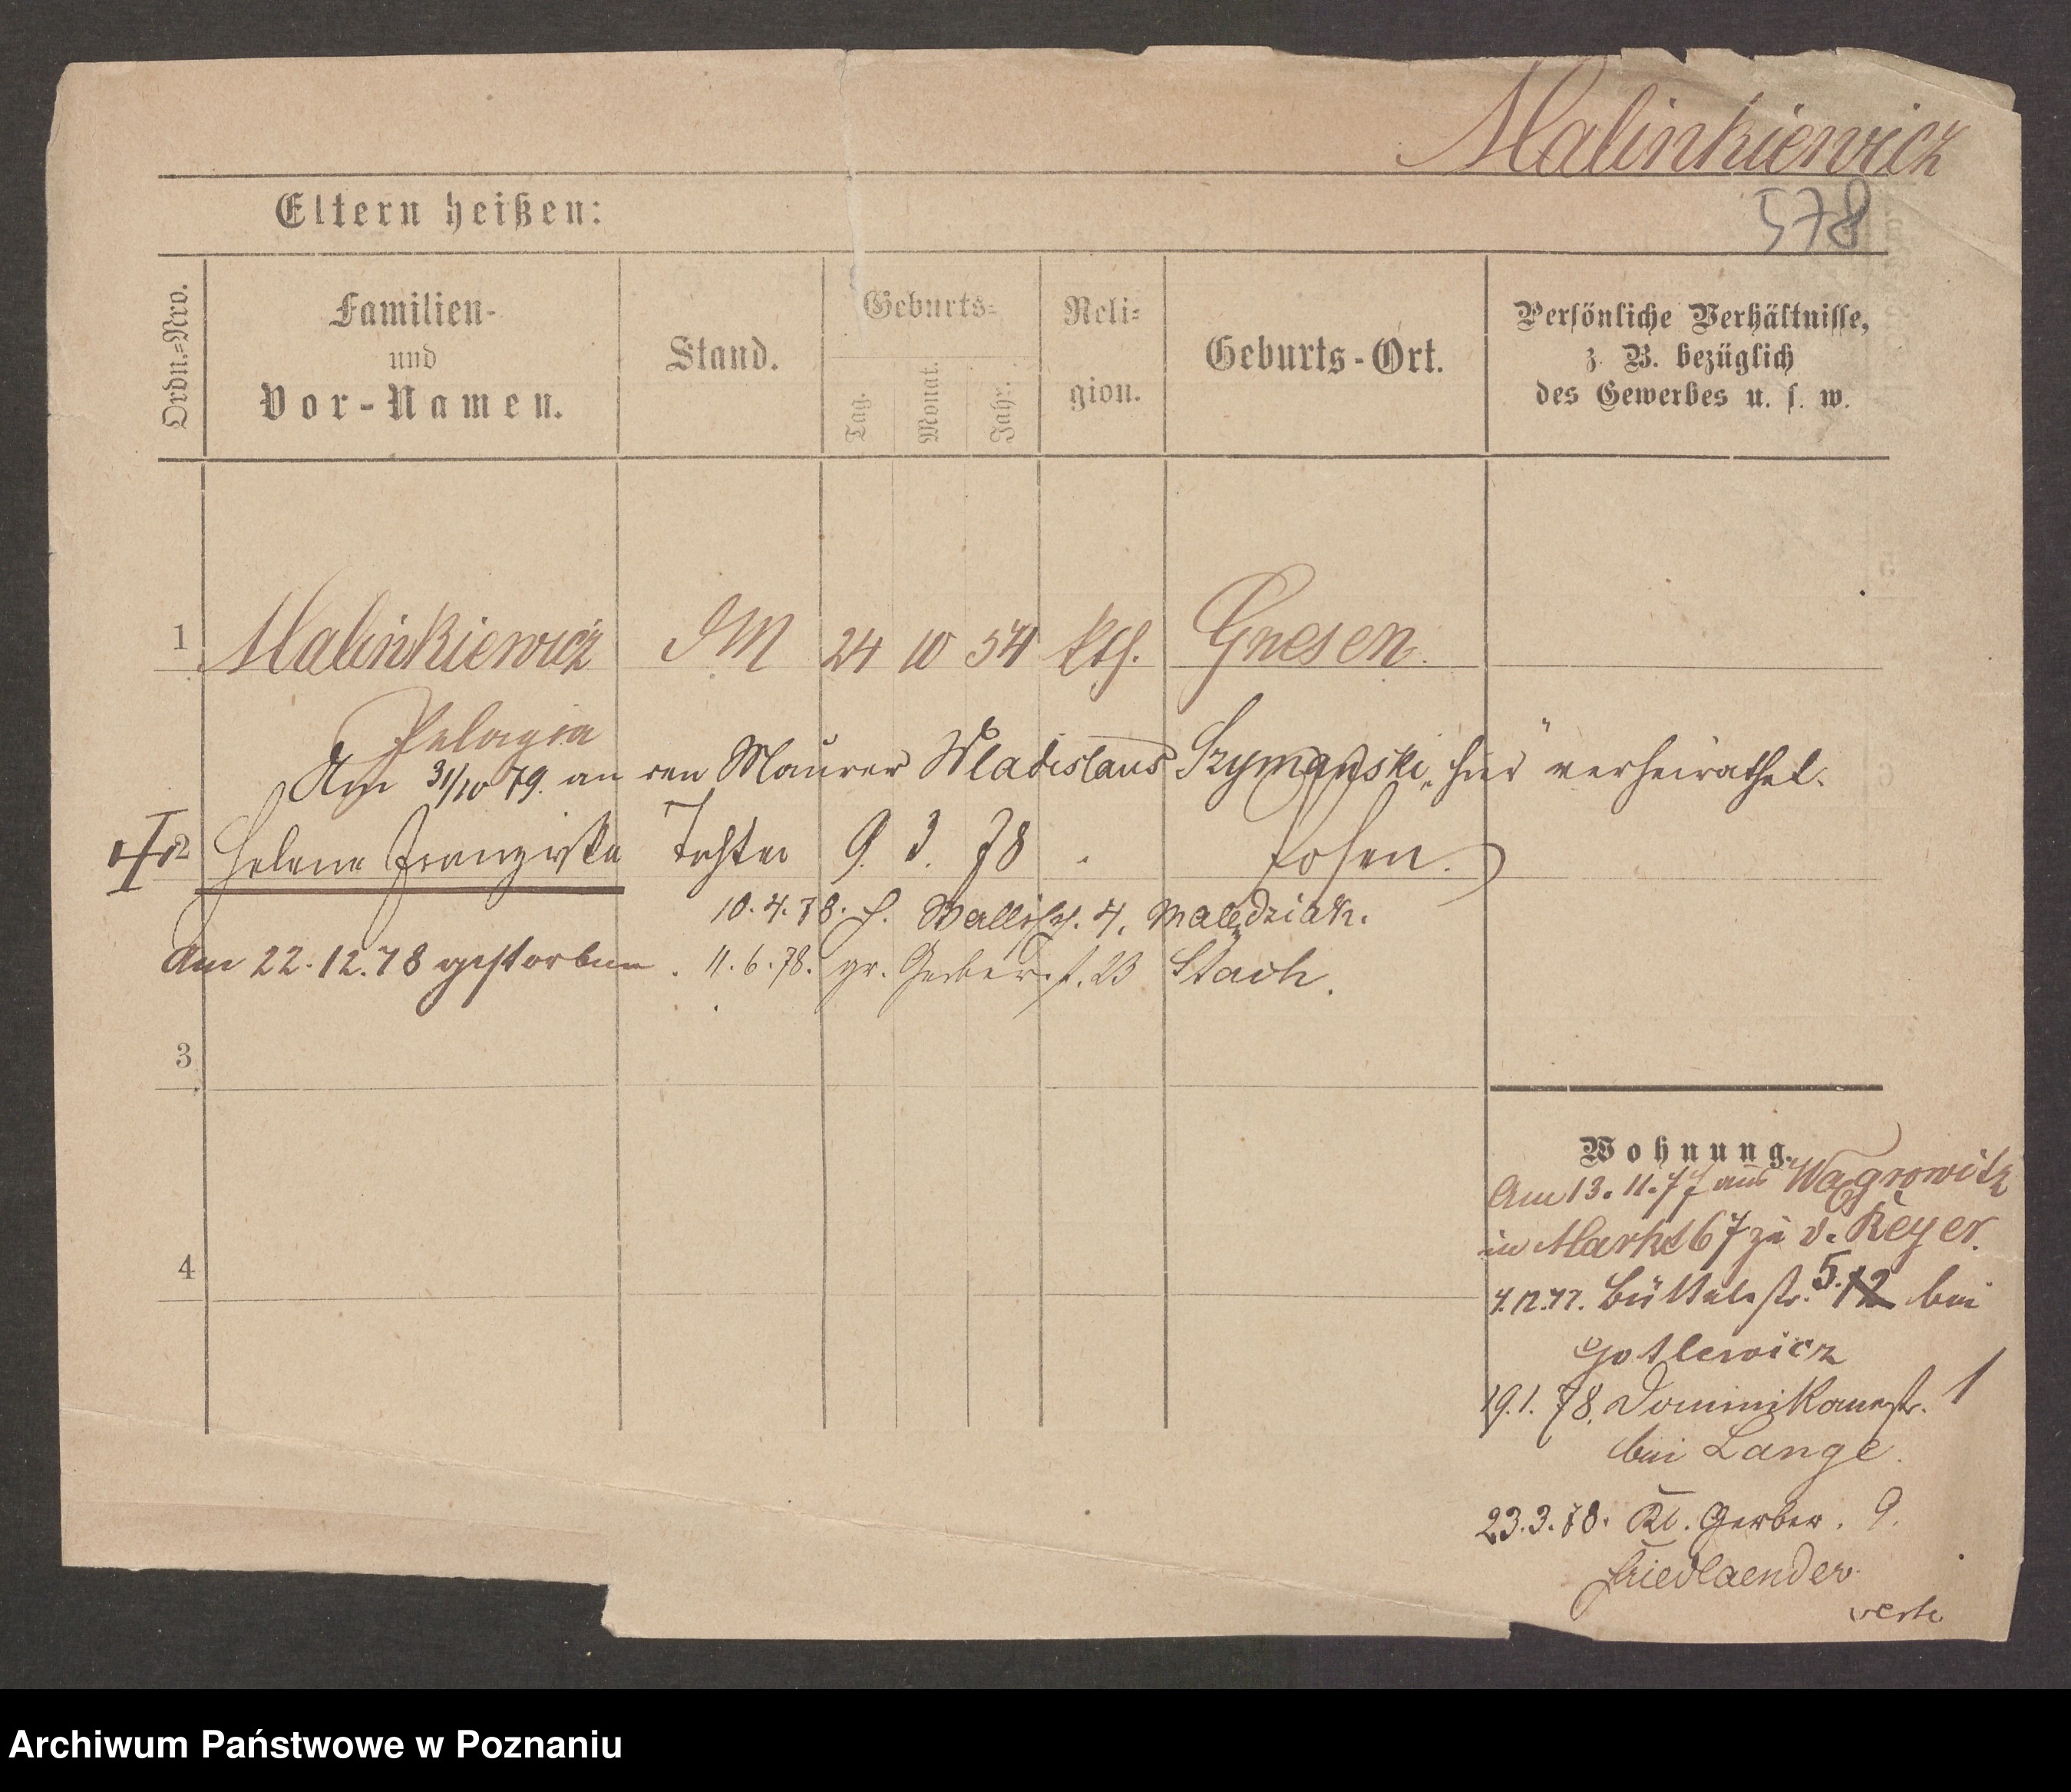 Malinkiewicz
578
Eltern heißen:
Ordn.=Nro.
Familien-
und
Vor-Namen.
Stand.
Geburts=
Tag.
Monat.
Jahr.
Reli=
gion.
Geburts-Ort.
Persönliche Verhältnisse,
z. B. bezüglich
des Gewerbes u. s. w.
1 Malinkiewicz 24 10 54 kth. Gnesen.
Pelagia
Am 31/10 79. an den Maurer Wladislaus Szymanski hier verheirathet.
2 Helene Franziska Tochter 9. 3. 78 Posen.
10.4.78. Wallisch. 4.
Am 22.12.78 gestorben. 11.6.78. gr. Gerberst. 23 Stach.
3
4
Wohnung.
Am 13.11.77 aus Wagrowitz
in Markt 67 zu v. Reyer.
4.12.77. Büttelstr. 5. 12 bei
Gotlewicz
19.1.78. Dominikanerstr. 1
bei Lange.
23.3.78. Kl. Gerber. 9.
Friedlaender
Archiwum Państwowe w Poznaniu